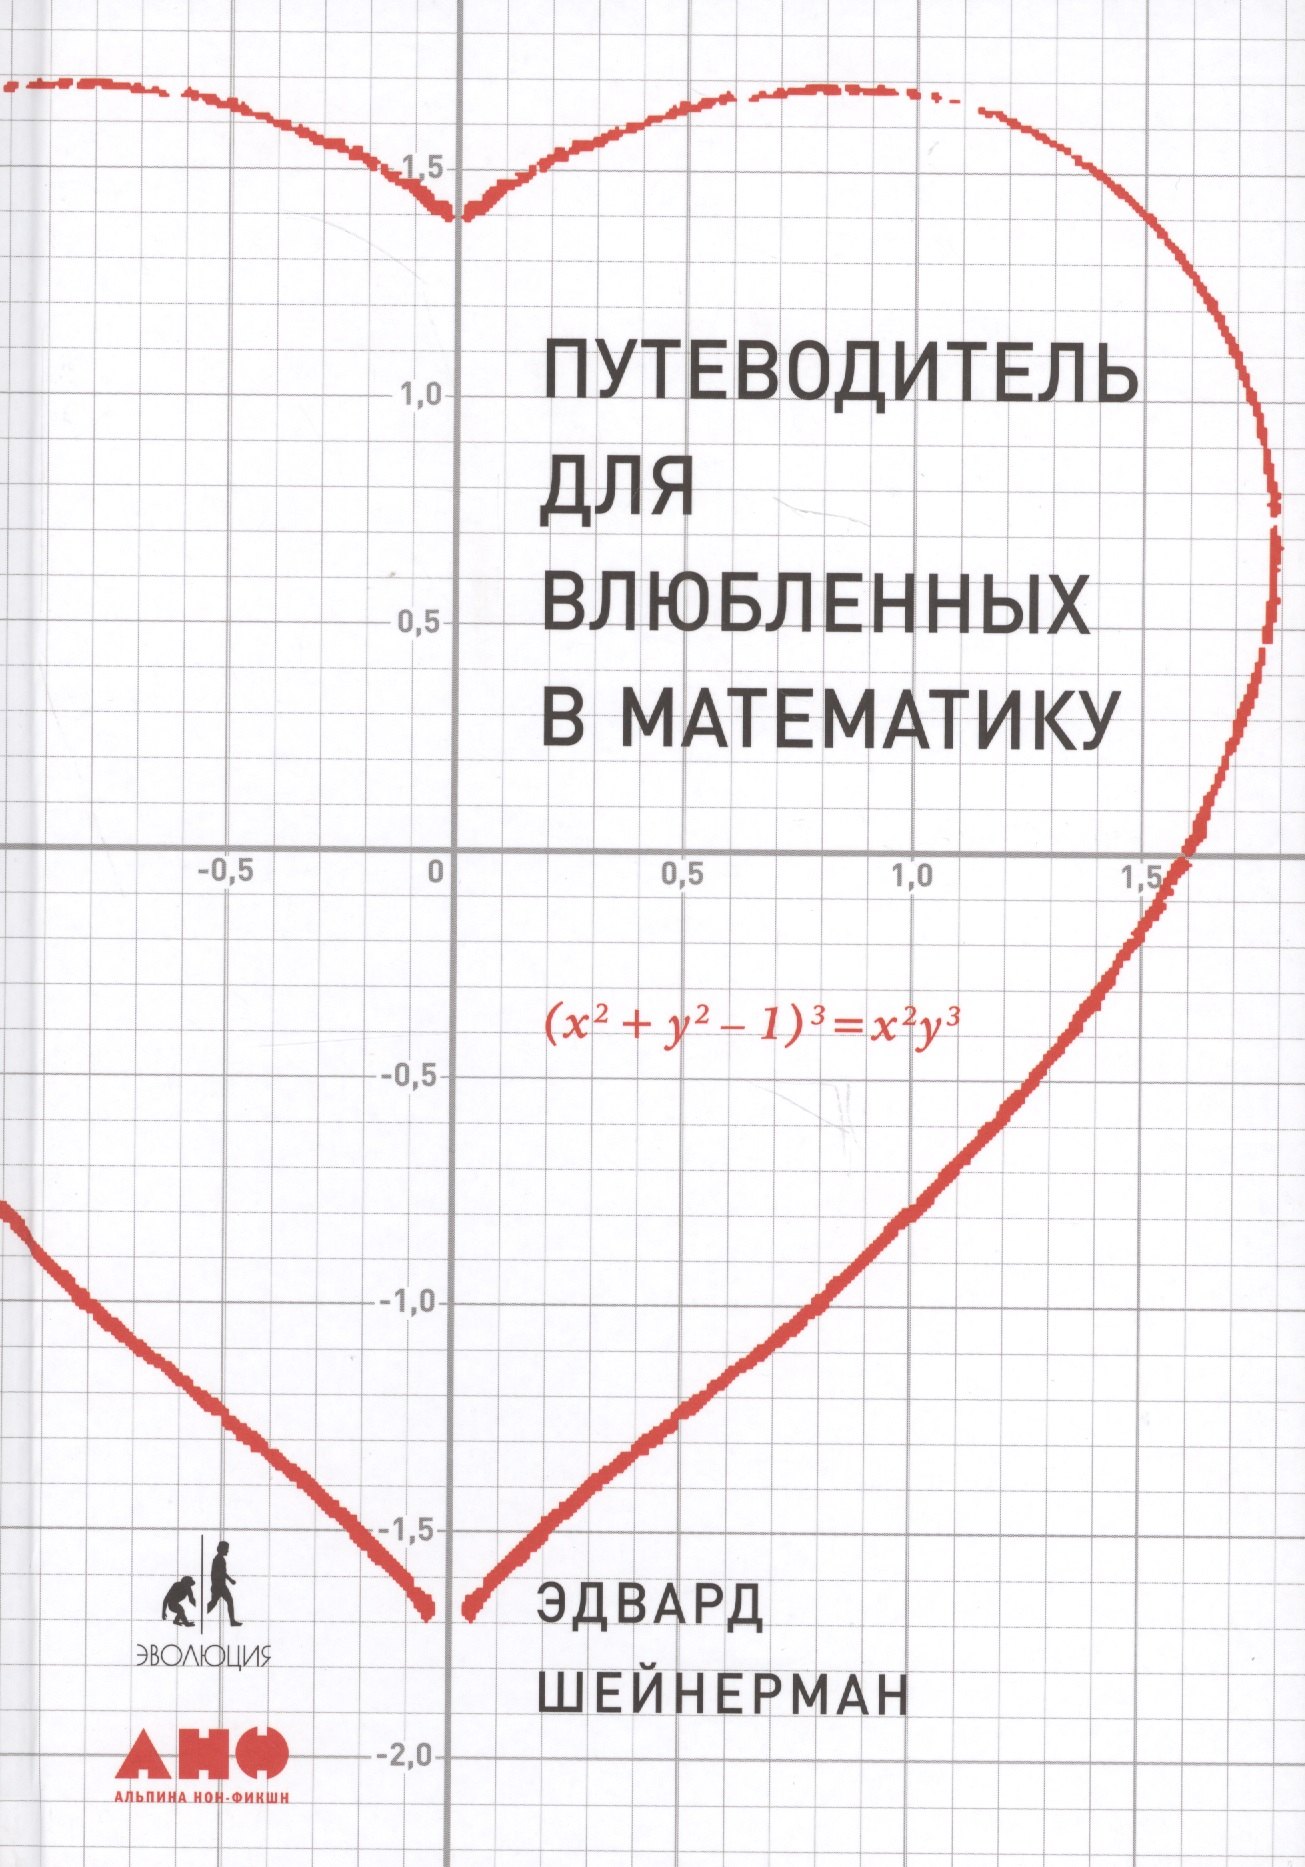 1,5
ПУТЕВОДИТЕЛЬ
1,0
ДЛЯ
ВЛЮБЛЕННЫХ
0,5
В МАТЕМАТИКУ
-0,5 0 0,5 1,0 1,5
(x² + y² – 1)³ = x²y³
-0,5
-1,0
-1,5
ЭДВАРД
ШЕЙНЕРМАН
ЭВОЛЮЦИЯ
-2,0
АНФ
АЛЬПИНА НОН-ФИКШН